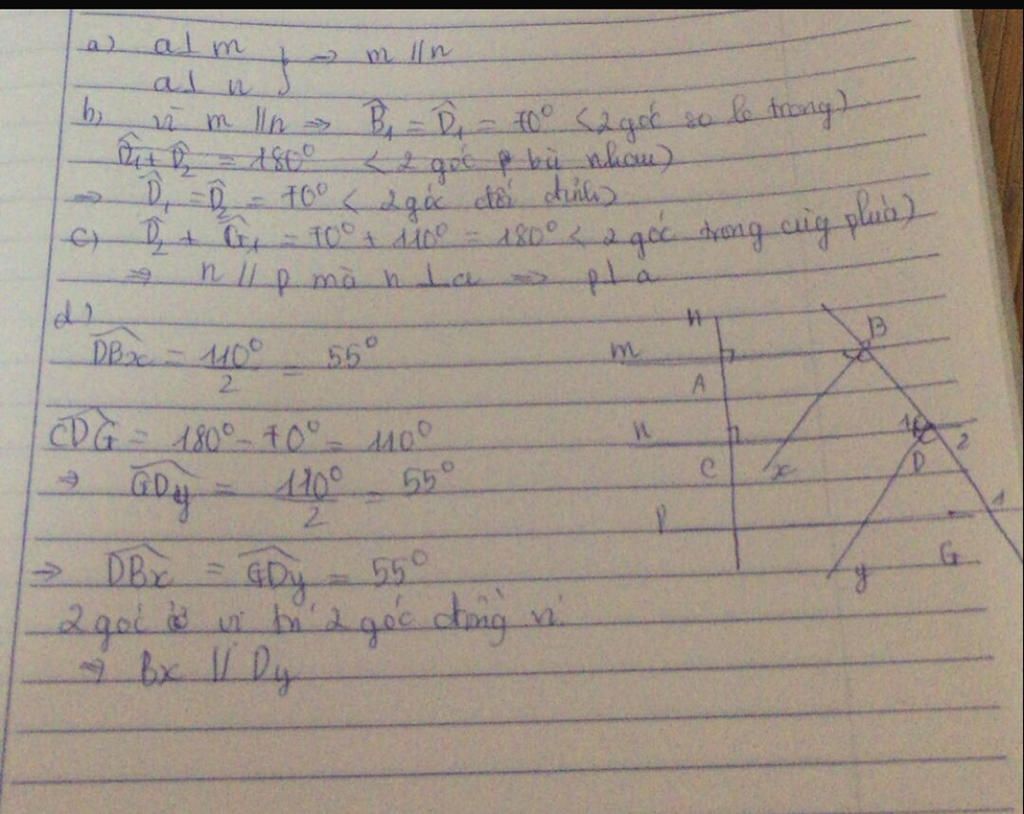 a) a ⊥ m
a ⊥ n } ⇒ m // n
b) vì m // n ⇒ B̂₁ = D̂₁ = 70° < 2 góc so le trong)
D̂₁ + D̂₂ = 180° < 2 góc bù nhau)
⇒ D̂₁ = D̂₂ = 70° < 2 góc đối đỉnh)
c) D̂₂ + Ĝ₁ = 70° + 110° = 180° < 2 góc trong cùg phía)
⇒ n // p mà n ⊥ a ⇒ p ⊥ a
d)
DBx = 110°/2 = 55°
CDG = 180° - 70° = 110°
⇒ GDy = 110°/2 = 55°
⇒ DBx = GDy = 55°
2 góc ở vị trí 2 góc đồng vị
⇒ Bx // Dy
B
m
A
n
1
2
C
x
D
p
1
G
y